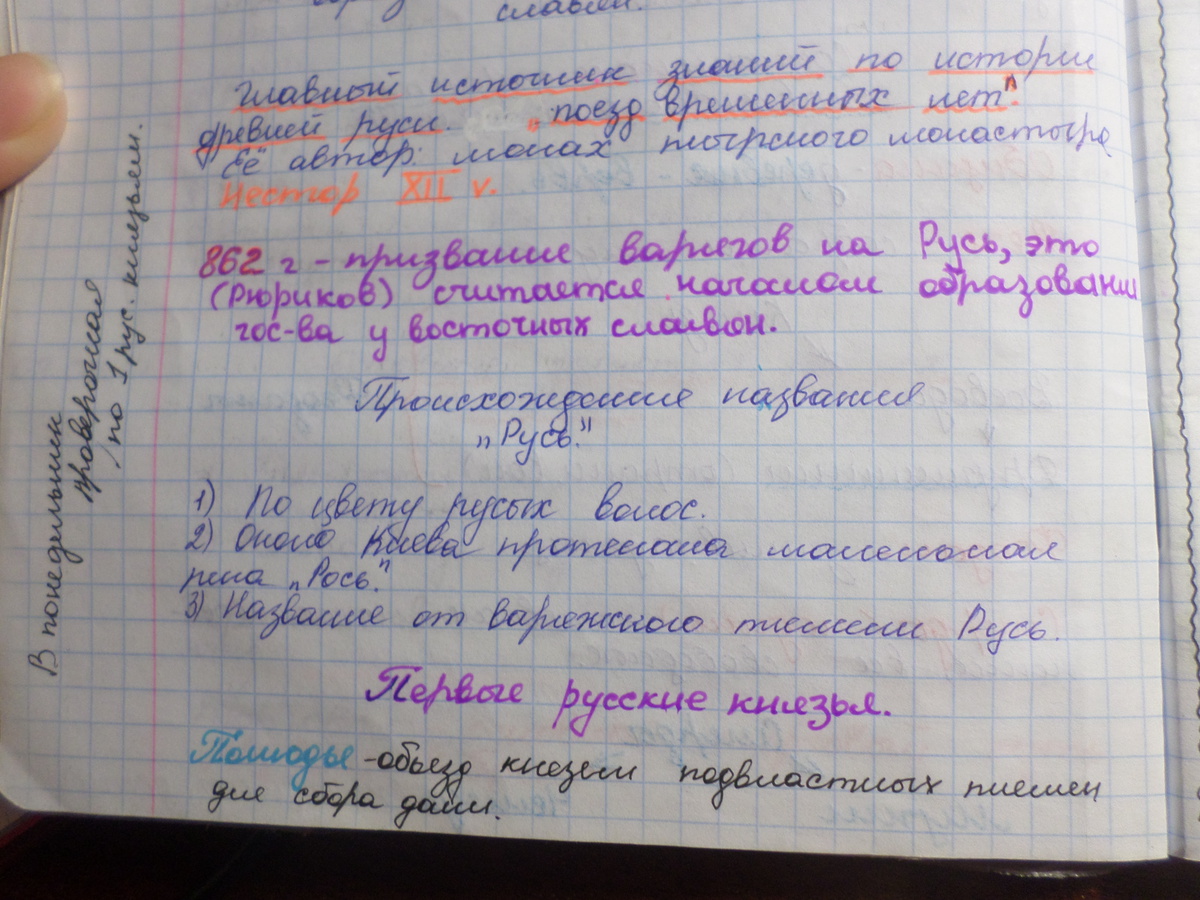 славян.
Главный источник знаний по истории
древней руси. „поезд временных лет".
Её автор: монах пырского монастыря
Нестор XII v.
862 г - призвание варягов на Русь, это
(Рюриков) считается началом образовании
гос-ва у восточных славян.
Происхождение названия
„Русь."
1) По цвету русых волос.
2) Около Киева протекала маленькая
река „Рось."
3) Название от варяжского племени Русь.
Первые русские князья.
Полюдье - обьезд князем подвластных племен
для сбора дани.
В понедильник
проверочная
по 1 рус. князьям.